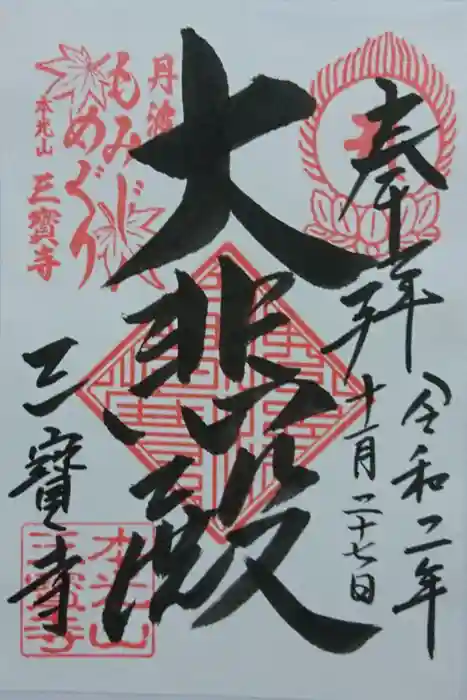 奉拝
令和二年
十一月二十七日
大悲殿
丹波
もみじ
めぐり
本光山
三寶寺
三寳寺
本光山
三寳寺